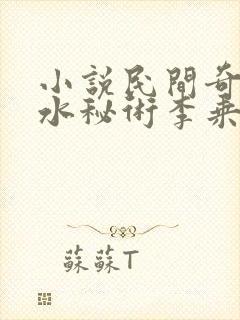 小說民間奇
水秘術李乘
蘇蘇T